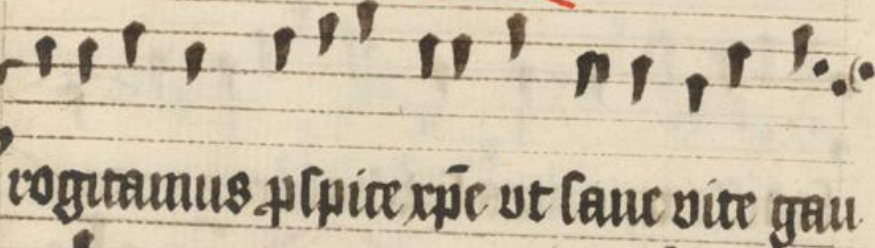 rogitamus ꝑspice xp̄e vt saue vite gau